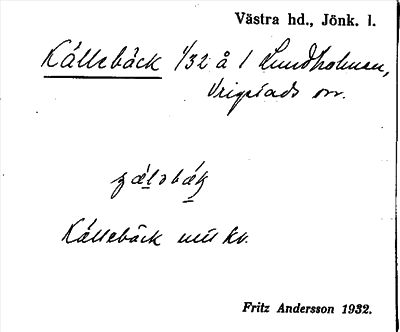 Västra hd., Jönk. l.
Källebäck 1/32 å 1 Lundholmen,
Vrigstads sn.
Källebäck mtl kr.
Fritz Andersson 1932.